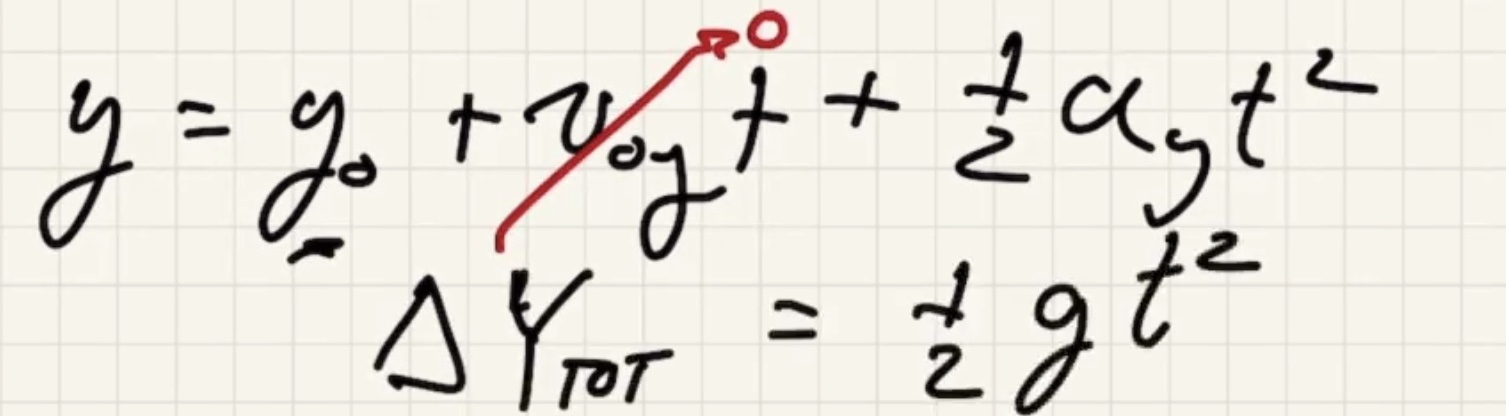 y = y₀ + v₀yt + ½ayt² 0
ΔY_TOT = ½gt²